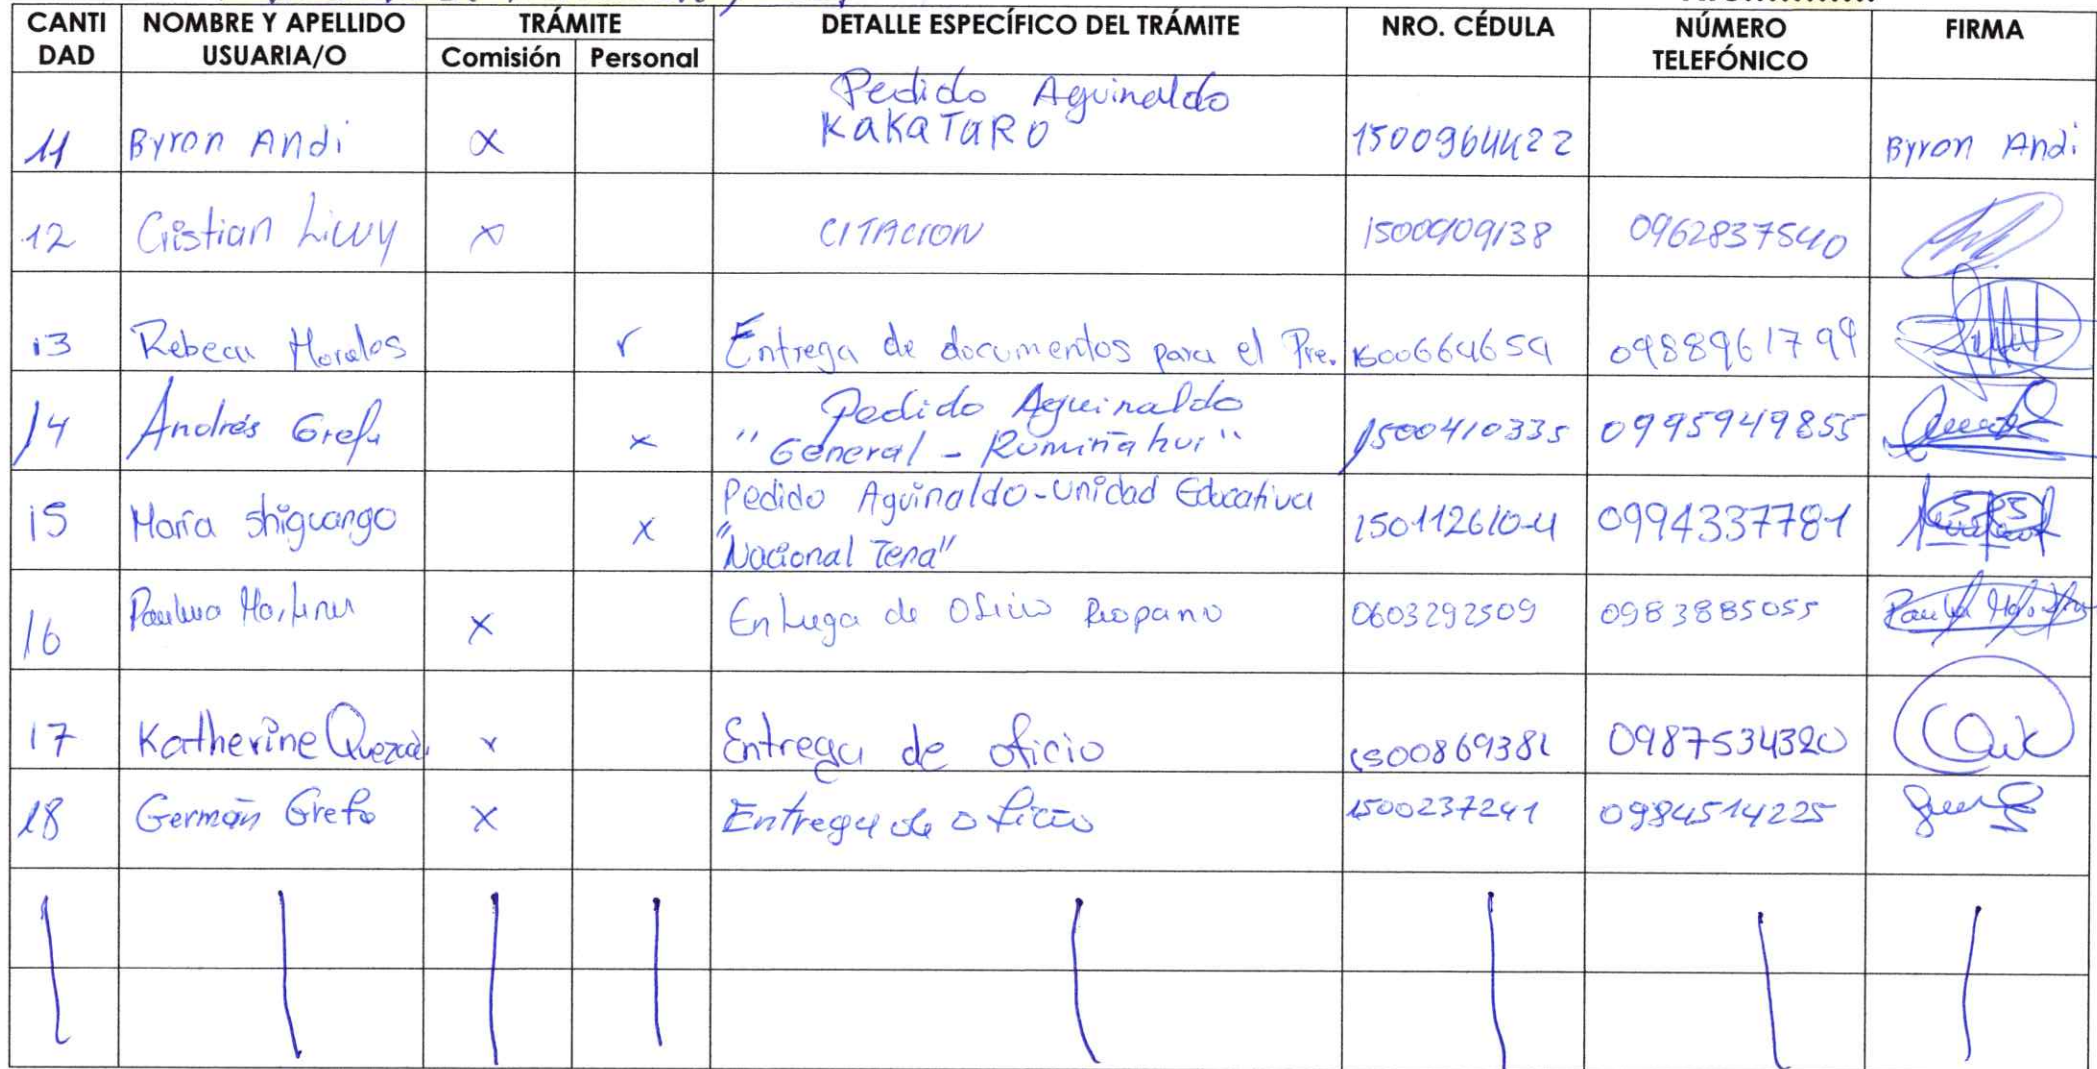 CANTI DAD NOMBRE Y APELLIDO USUARIA/O TRÁMITE Comisión Personal DETALLE ESPECÍFICO DEL TRÁMITE NRO. CÉDULA NÚMERO TELEFÓNICO FIRMA
11 Byron Andi x Pedido Aguinaldo KAKATARO 1500964422 Byron Andi
12 Cristian Licuy x CITACION 1500909138 0962837540
13 Rebeca Morales Entrega de documentos para el Pre. 1500664659 0988961799
14 Andrés Grefa x Pedido Aguinaldo "General - Rumiñahui" 1500410335 0995949855
15 María Shiguango x Pedido Aguinaldo-Unidad Educativa "Nacional Tena" 150112610-4 0994337781
16 x Entrega de Oficio 0603292509 0983885055
17 Katherine x Entrega de oficio 1500869381 0987534320
18 Germán Grefa x Entrega de oficio 1500237241 0984514225